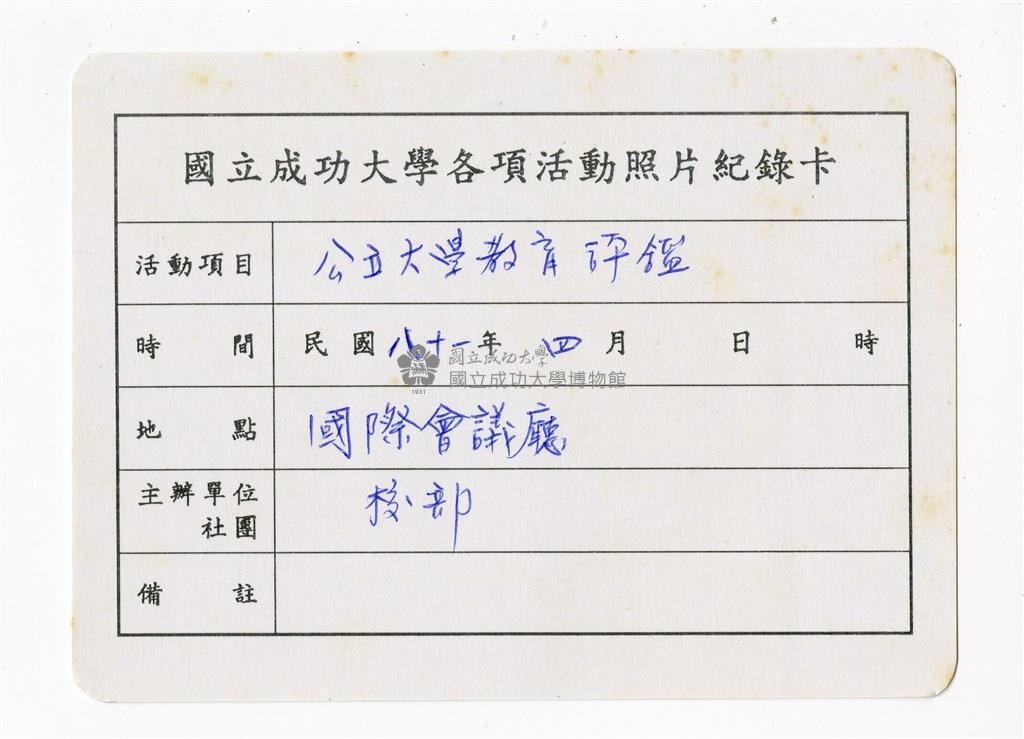 國立成功大學各項活動照片紀錄卡
活動項目 公立大學教育評鑑
時間 民國八十一年 四月 日 時
國立成功大學
國立成功大學博物館
1931
地點 國際會議廳
主辦單位 校部
社團
備註